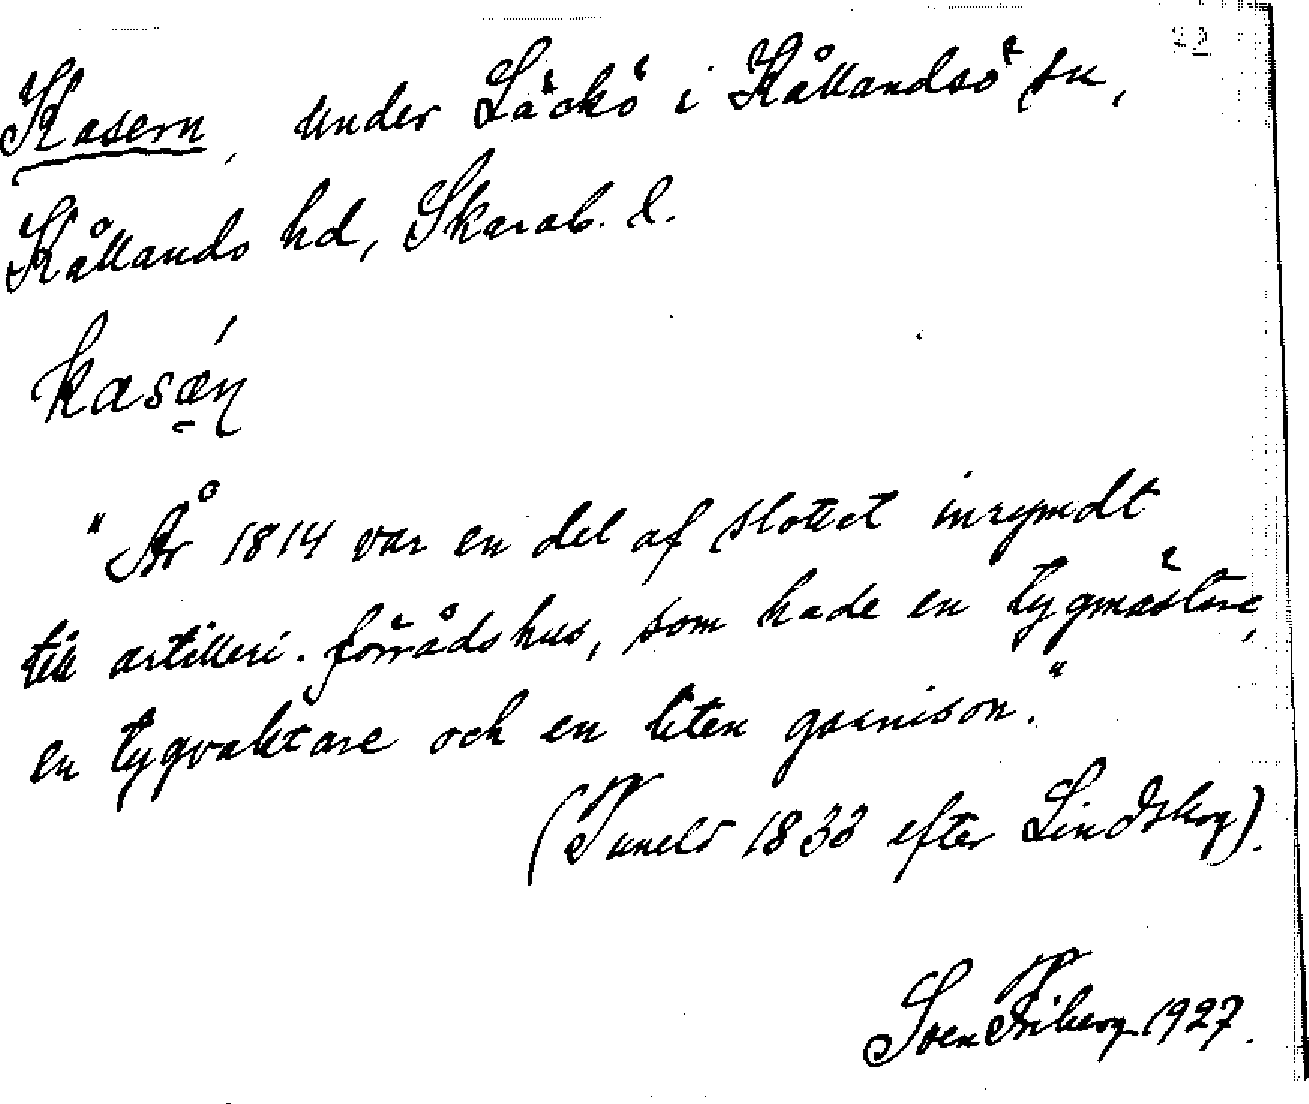 Kasern, under Läckö i Kållandsö sn,
Kållands hd, Skarab. l.
kasǽn
"År 1814 var en del af slottet inrymdt
till artilleri-förrådshus, som hade en tygmästare,
en tygvaktare och en liten garnison."
(Tuneld 1833 efter Lindskog).
Sven 1927.